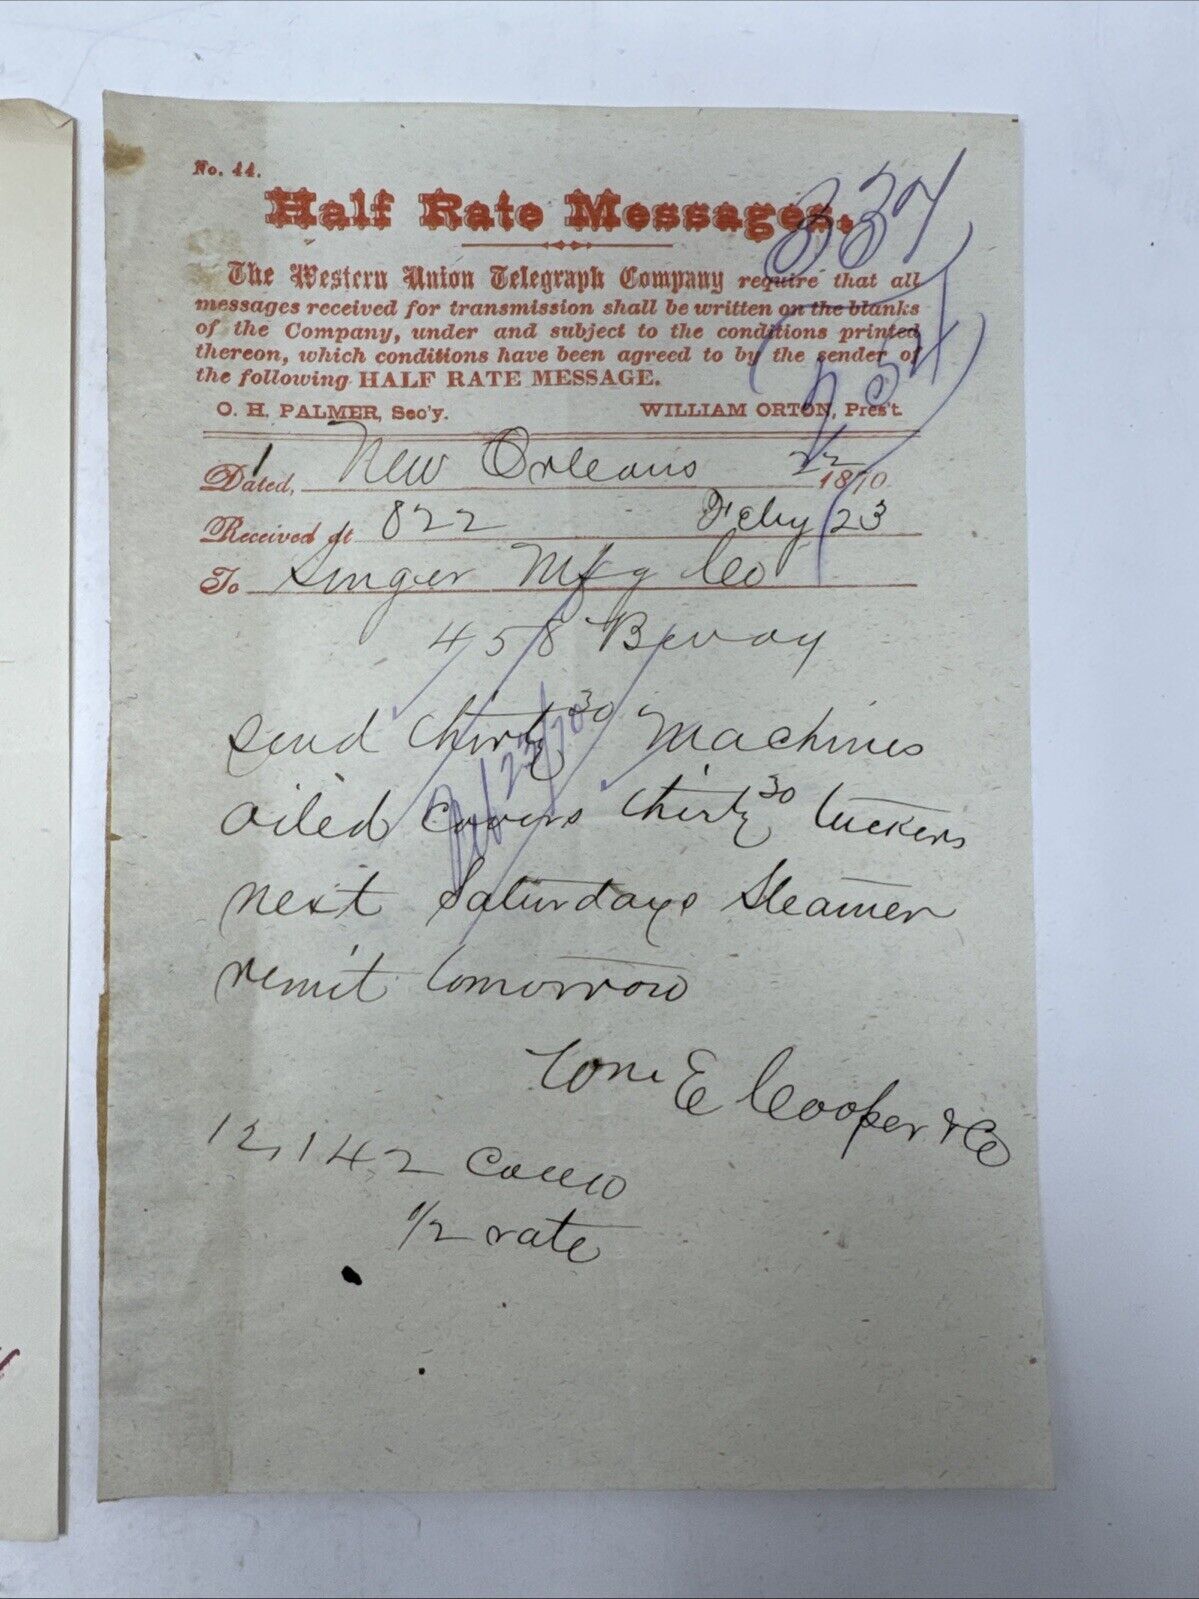 No. 44.
Half Rate Messages.
The Western Union Telegraph Company require that all
messages received for transmission shall be written on the blanks
of the Company, under and subject to the conditions printed
thereon, which conditions have been agreed to by the sender of
the following HALF RATE MESSAGE.
O. H. PALMER, Sec'y. WILLIAM ORTON, Pres't.
337
Dated, 1 New Orleans 22 1870
Received at 822 Feby 23
To Singer Mfg Co
458 Bway
Send thirty 30 Machines
oiled covers thirty 30 tuckers
next Saturdays Steamer
remit tomorrow
Wm E Cooper & Co
12,142
1/2 rate